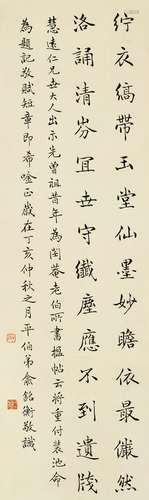 紵衣縞帶玉堂仙墨妙瞻依最儼然
洛誦清芬冝世守纖塵應不到遺牋
慧遠仁兄世大人出示先曾祖昔年為閬菴老伯所書楹帖云將重付裝池命
為題記敬賦短章即希唫正歲在丁亥仲秋之月平伯弟俞銘衡敬識